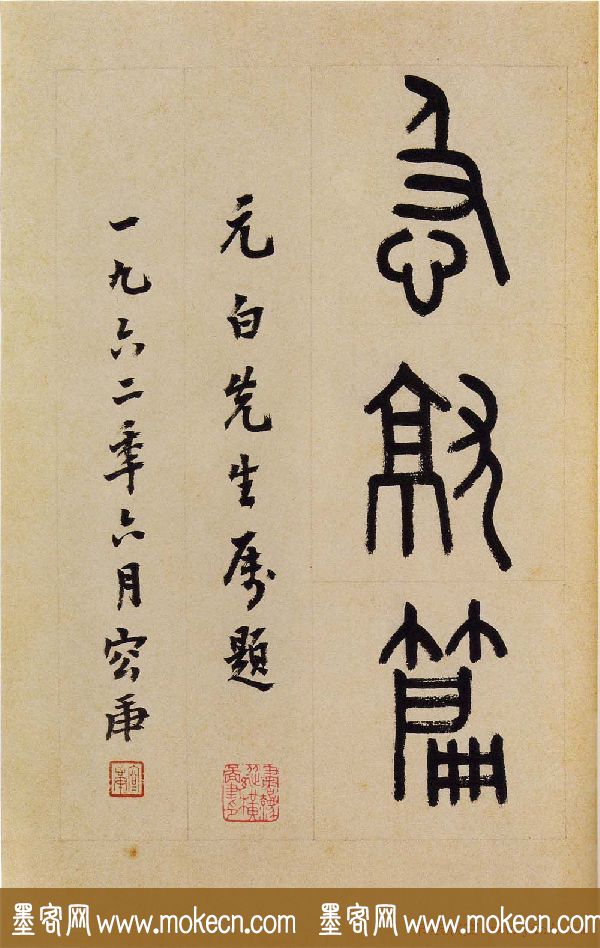 急就篇
元白先生属题
一九六二年六月容庚
容庚
墨客网 www.mokecn.com 墨客网 www.mokecn.com